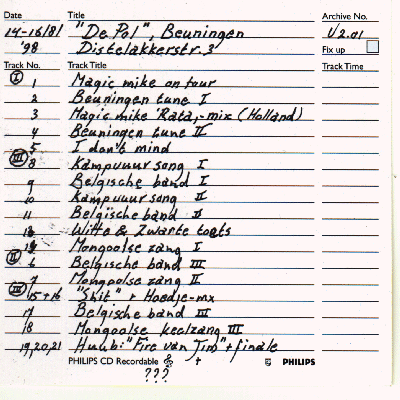 Date Title Archive No.
14-16/8/ "De Pol", Beuningen U2.01
'98 Distelakkerstr. 3 Fix up
Track No. Track Title Track Time
I 1 Magic mike on tour
2 Beuningen tune I
3 Magic mike 'Rata,-mix (Holland)
4 Beuningen tune II
5 I don't mind
III 8 Kampuuur song I
9 Belgische band I
10 Kampuuur song II
11 Belgische band II
Witte & Zwarte toets
Mongoolse zang I
II 6 Belgische band III
7 Mongoolse zang II
15+16 "Shit" + Hoedje-mx
17 Belgische band III
18 Mongoolse keelzang III
19,20,21 Huub: "Fire van Jim" + finale
PHILIPS CD Recordable PHILIPS
???